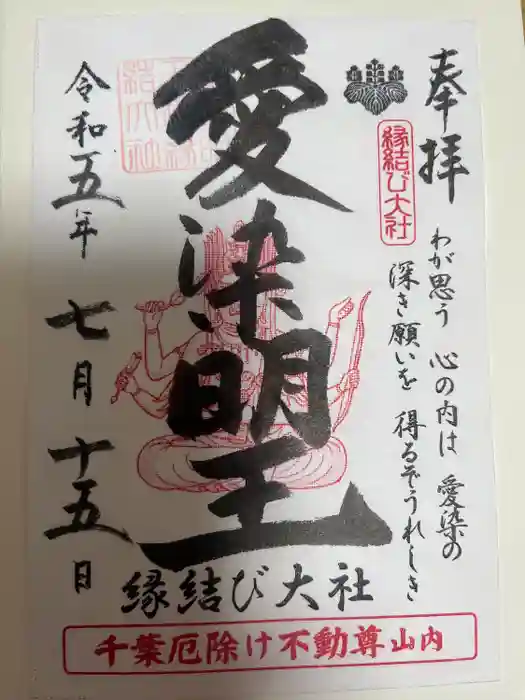 奉拝
縁結び大社
わが思う 心の内は 愛染の
深き願いを 得るぞうれしき
愛染明王
縁結び大社
令和五年 七月 十五日
千葉厄除け不動尊山内